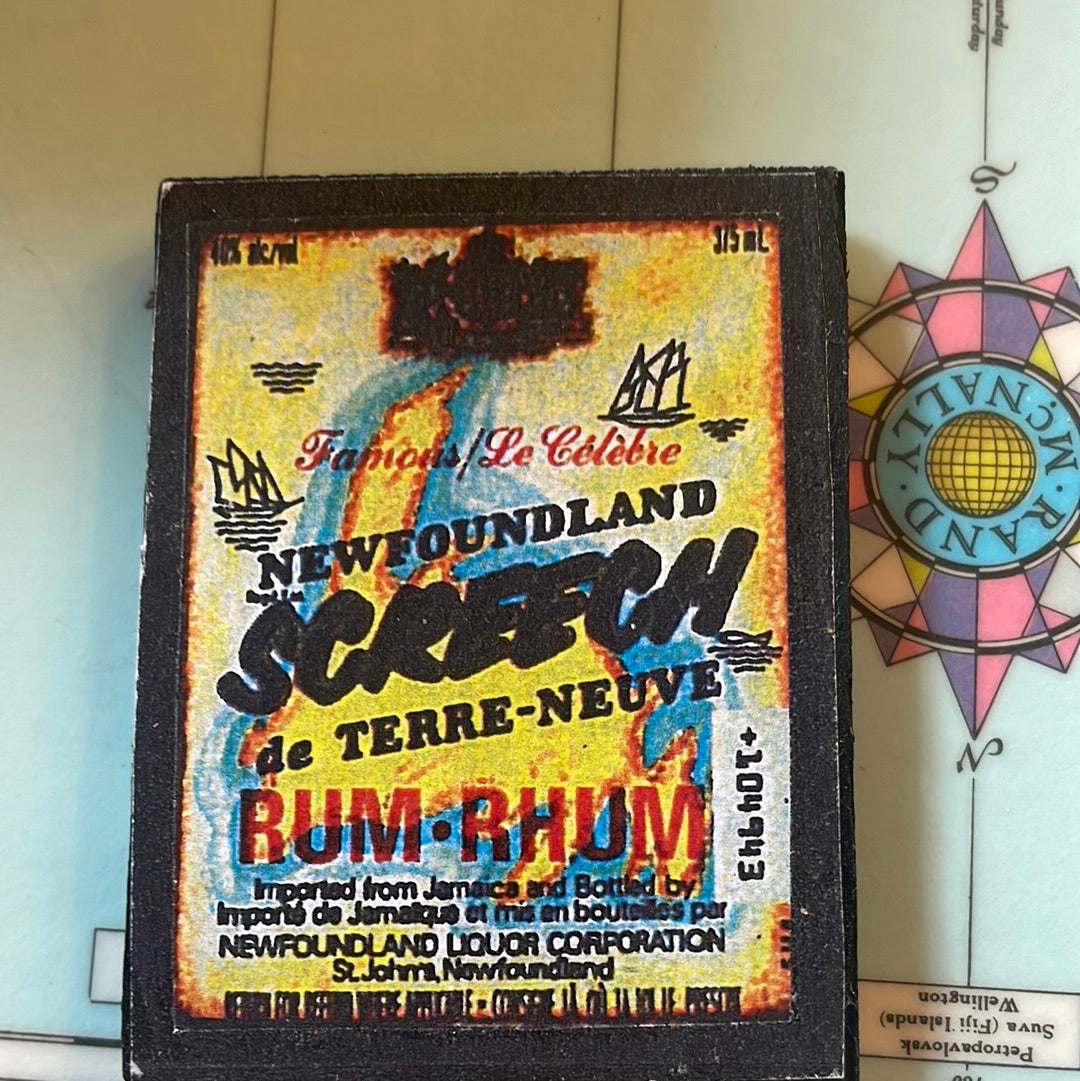 40% alc/vol
375 mL
Famous/Le Célèbre
NEWFOUNDLAND
SCREECH
de TERRE-NEUVE
RUM·RHUM
Imported from Jamaica and Bottled by
Importé de Jamaïque et mis en bouteilles par
NEWFOUNDLAND LIQUOR CORPORATION
St. John's, Newfoundland
+104943
Sunday
Saturday
S
RAND McNALLY
N
Petropavlovsk
Suva (Fiji Islands)
Wellington